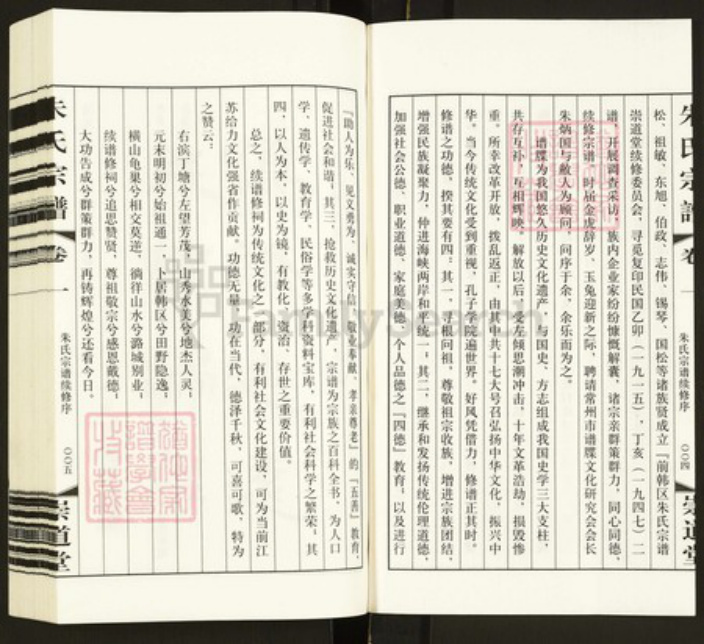 松、祖敏、东旭、伯政、志伟、锡琴、国松等诸族贤成立『前韩区朱氏宗谱
崇道堂续修委员会，寻觅复印民国乙卯（一九一五）、丁亥（一九四七）二
谱，开展调查采访。族内企业家纷纷慷慨解囊，诸宗亲群策群力，同心同德，
续修宗谱。时届金虎辞岁、玉兔迎新之际，聘请常州市谱牒文化研究会会长
朱炳国与敝人为顾问，问序于余，余乐而为之。
谱牒为我国悠久历史文化遗产，与国史、方志组成我国史学三大支柱，
共存互补，互相辉映。解放以后，受左倾思潮冲击，十年文革浩劫，损毁惨
重。所幸改革开放，拨乱返正，由其中共十七大号召弘扬中华文化，振兴中
华。当今传统文化受到重视，孔子学院遍世界。好风凭借力，修谱正其时。
修谱之功德，揆其要有四：其一，寻根问祖，尊敬祖宗收族，增进宗族团结，
增强民族凝聚力，伸进海峡两岸和平统一；其二，继承和发扬传统伦理道德，
加强社会公德、职业道德、家庭美德、个人品德之『四德』教育；以及进行
朱氏宗谱
卷一
朱氏宗谱续修序
〇〇四
崇道堂
『助人为乐、见义勇为、诚实守信、敬业奉献、孝亲尊老』的『五善』教育，
促进社会和谐；其三，抢救历史文化遗产，宗谱为宗族之百科全书，为人口
学、遗传学、教育学、民俗学等多学科资料宝库，有利社会科学之繁荣；其
四，以人为本，以史为镜，有教化、资治、存世之重要价值。
总之，续谱修祠为传统文化之一部分，有利社会文化建设，可为当前江
苏给力文化强省作贡献。功德无量，功在当代，德泽千秋，可喜可歌，特为
之赞云：
右滨丁塘兮左望芳茂，山秀水美兮地杰人灵；
元末明初兮始祖通一，卜居韩区兮田野隐逸；
横山龟巢兮相交莫逆，徜徉山水兮潞城别业；
续谱修祠兮追思赞贤，尊祖敬宗兮感恩戴德；
大功告成兮群策群力，再铸辉煌兮还看今日。
朱氏宗谱
卷一
朱氏宗谱续修序
〇〇五
崇道堂
FamilySearch